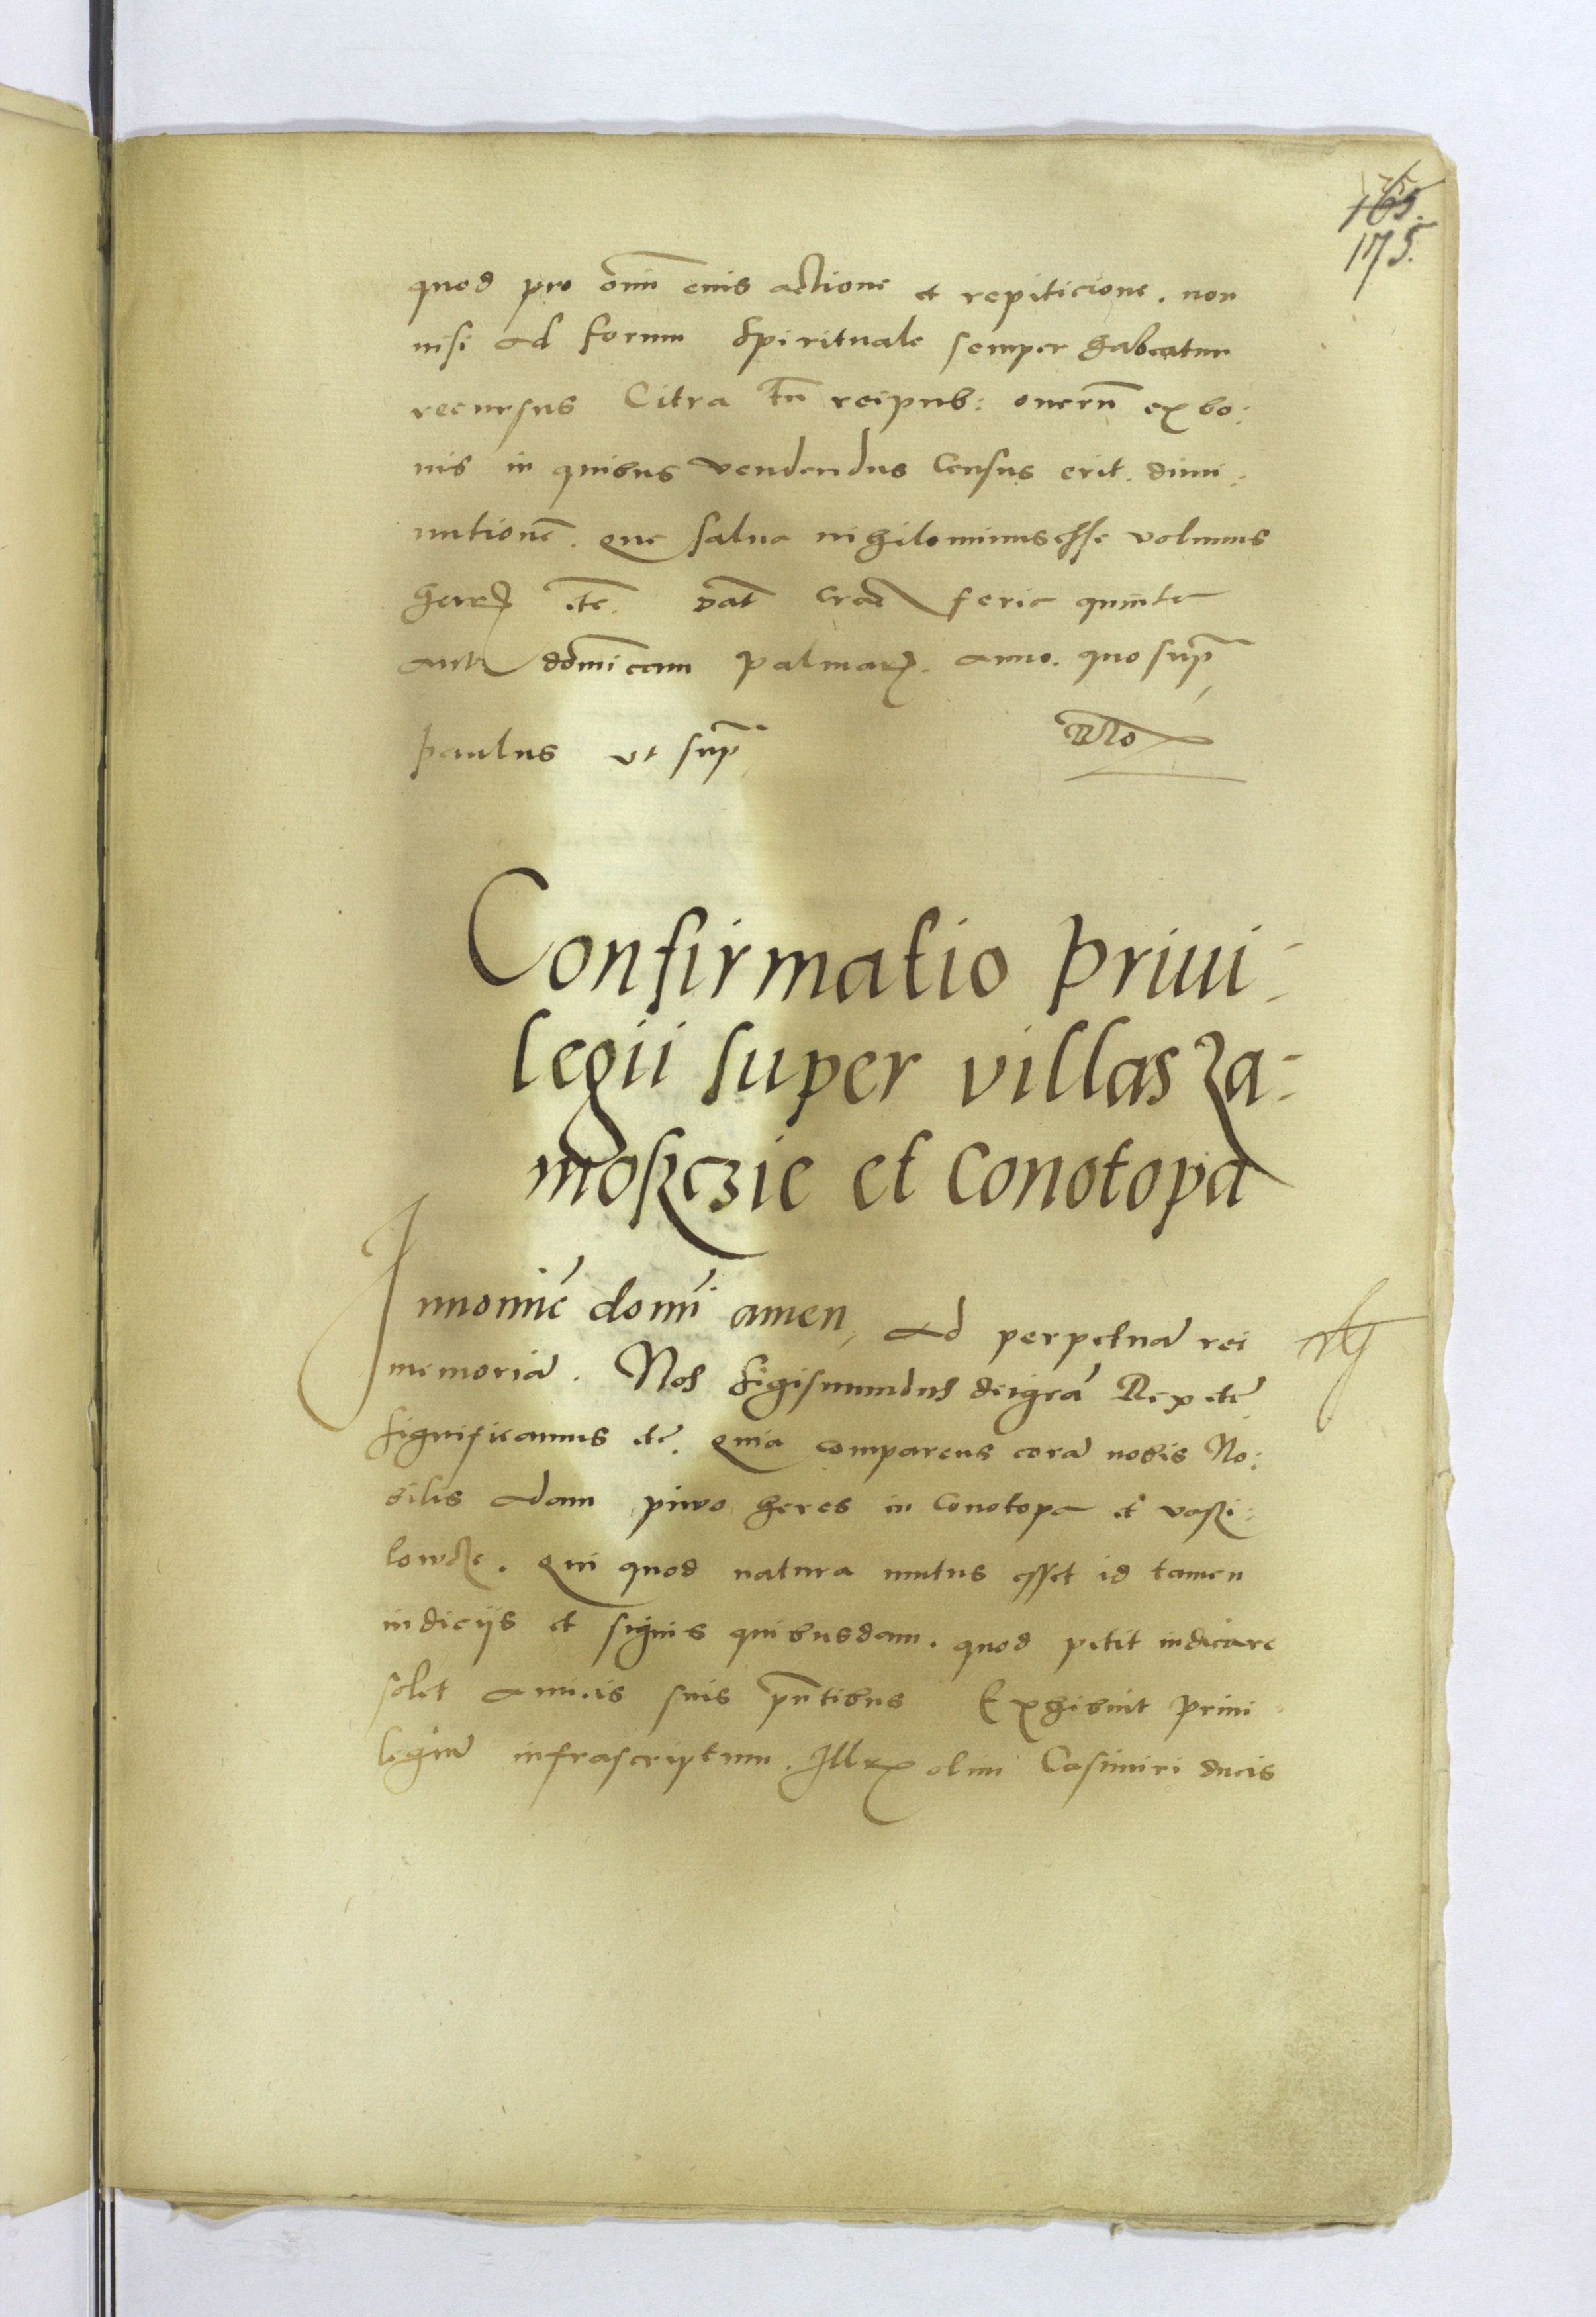 165.
175.
quod pro omni eius actione et repiticione. non
nisi ad forum Spirituale semper habeatur
recursus Citra tn̄ reipub: onerū ex bo:
nis in quibus vendendus Census erit. dimi:
nutionē. que salua nihilominus esse volumus
harꝝ etc̄. Dat̄ Crac̄ feria quinta
ante domīcam palmarꝝ. anno. quo sup̄
paulus vt sup̄
Confirmatio priui-
legii super villas Za-
moſczie et Conotopa
In nomīe domī amen, Ad perpetuā rei
memoriā. Nos Sigismundus dei grā Rex etc̄
significamus etc̄. Quia comparens corā nobis No:
bilis Adam piwo heres in Conotopa et vaszi:
lowcze. Qui quod natura mutus esset id tamen
indicijs et signis quibusdam. quod petit indicare
solet amicis suis pn̄tibus Exhibuit priui-
legiū infrascriptum. Illrꝭ olim Casimiri ducis